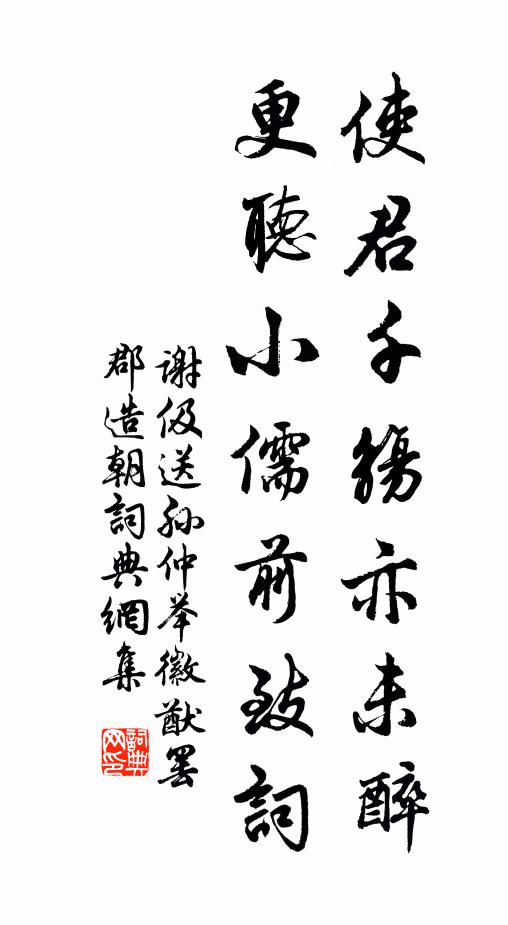 使君千觴亦未醉
更聽小儒前致詞
謝伋送孙仲举徽猷罢
郡造朝詞典網集
詞典
网印